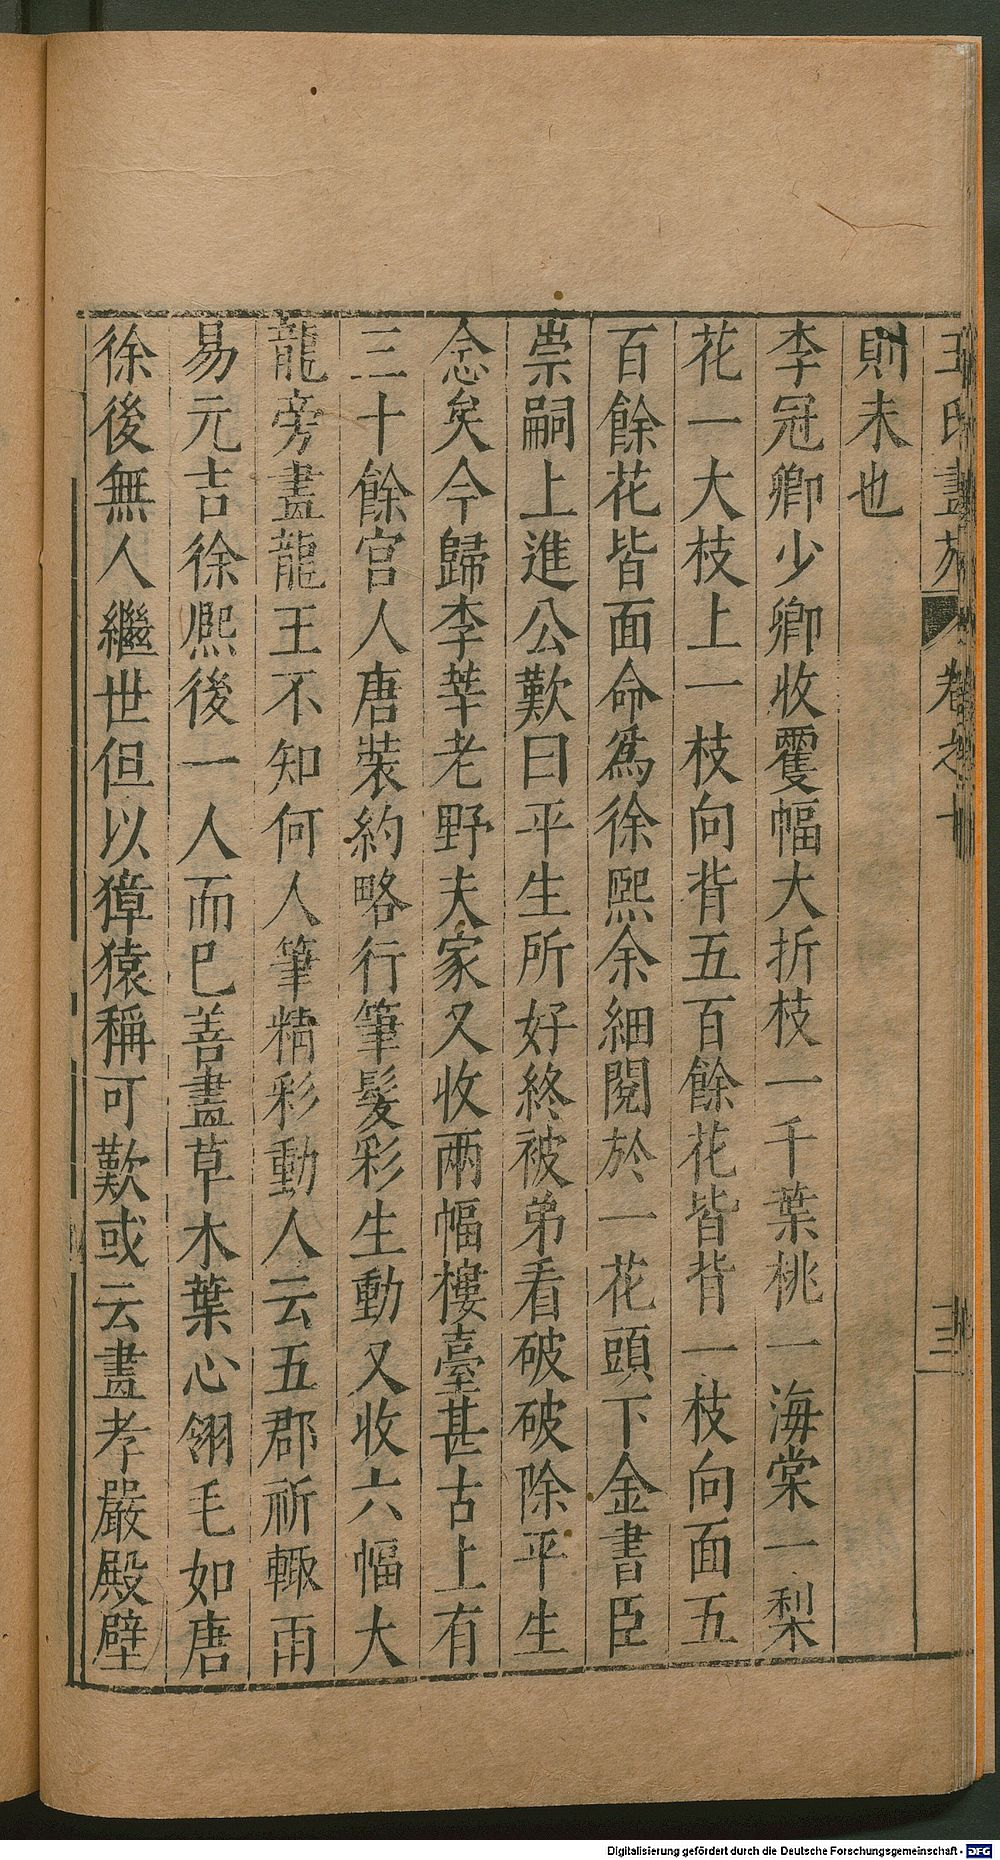 王氏畫苑 卷之十 三
則未也
李冠卿少卿收雙幅大折枝一千葉桃一海棠一梨
花一大枝上一枝向背五百餘花皆背一枝向面五
百餘花皆面命爲徐熙余細閱於一花頭下金書臣
崇嗣上進公歎曰平生所好終被弟看破破除平生
念矣今歸李莘老野夫家又收兩幅樓臺甚古上有
三十餘宮人唐裝約略行筆髮彩生動又收六幅大
龍旁畫龍王不知何人筆精彩動人云五郡祈輙雨
易元吉徐熙後一人而已善畫草木葉心翎毛如唐
徐後無人繼世但以獐猿稱可歎或云畫孝嚴殿壁
Digitalisierung gefördert durch die Deutsche Forschungsgemeinschaft - DFG